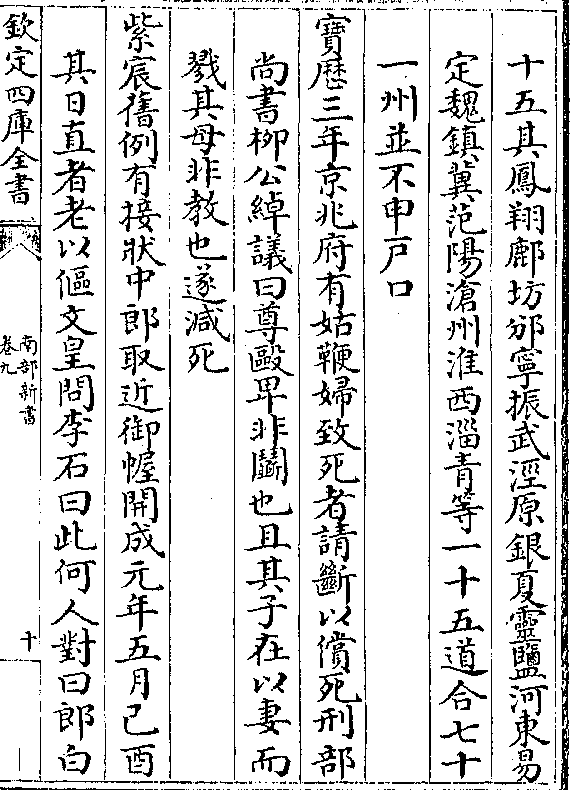 十五其鳳翔鄜坊邠寧振武涇原銀夏靈鹽河東易
定魏鎮冀范陽滄州淮西淄青等一十五道合七十
一州並不申戸口
寳歴三年京兆府有姑鞭婦致死者請斷以償死刑部
尚書栁公綽議曰尊毆卑非鬭也且其子在以妻而
戮其母非教也遂減死
紫宸舊例有接狀中郎取近御幄開成元年五月己酉
其日直者老以傴文皇問李石曰此何人對曰郎白
欽定四庫全書
南部新書
卷九
十